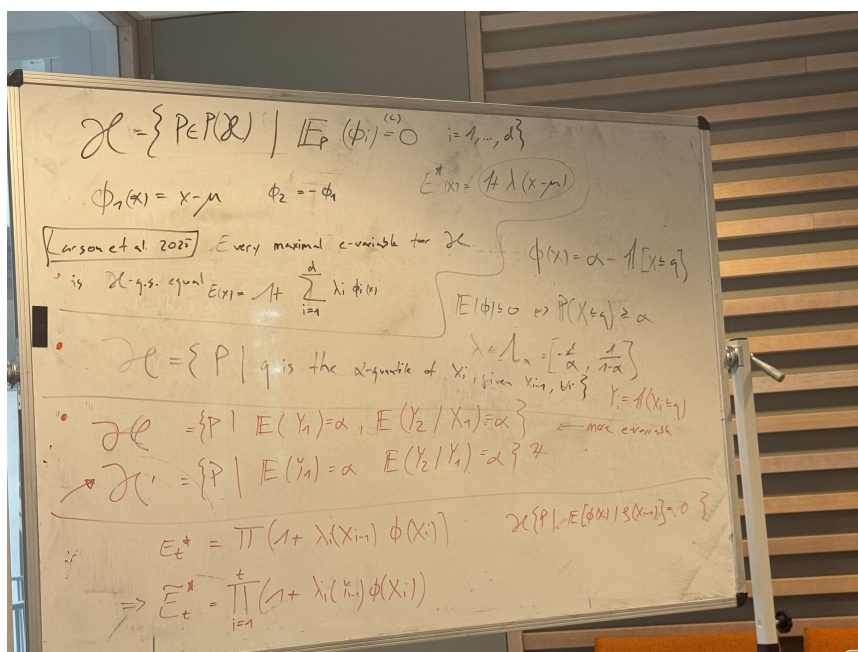 ℋ = { P∈P(𝒳) | 𝔼_P (ϕ_i) (≤) = 0 i = 1, ..., d}
ϕ_1(x) = x-μ ϕ_2 = -ϕ_1 E*(x) = 1+ λ(x-μ)
Larson et al. 2025 Every maximal e-variable for ℋ
is ℋ-q.s. equal E(x) = 1+ Σ_{i=1}^{d} λ_i ϕ_i(x)
ϕ(x) = α - 1[x≤q]
𝔼[ϕ]≤0 ⇔ P(X≤q) ≥ α
λ ∈ Λ_α = [-1/α, 1/(1-α)]
ℋ = { P | q is the α-quantile of X_i, given X_{i-1}, ∀i }
Y_i = 1(X_i≤q)
ℋ = {P | 𝔼(Y_1)=α, 𝔼(Y_2/X_1)=α} ← more e-variable
ℋ' = {P | 𝔼(Y_1)=α 𝔼(Y_2/Y_1)=α}
ℋ{P | 𝔼[ϕ(X_i) | (X_{i-1})]=0 }
if E_t* = Π(1+ λ_i(X_{i-1}) ϕ(X_i))
⇒ Ẽ_t* = Π_{i=1}^{t}(1+ λ_i(Y_{i-1})ϕ(X_i))